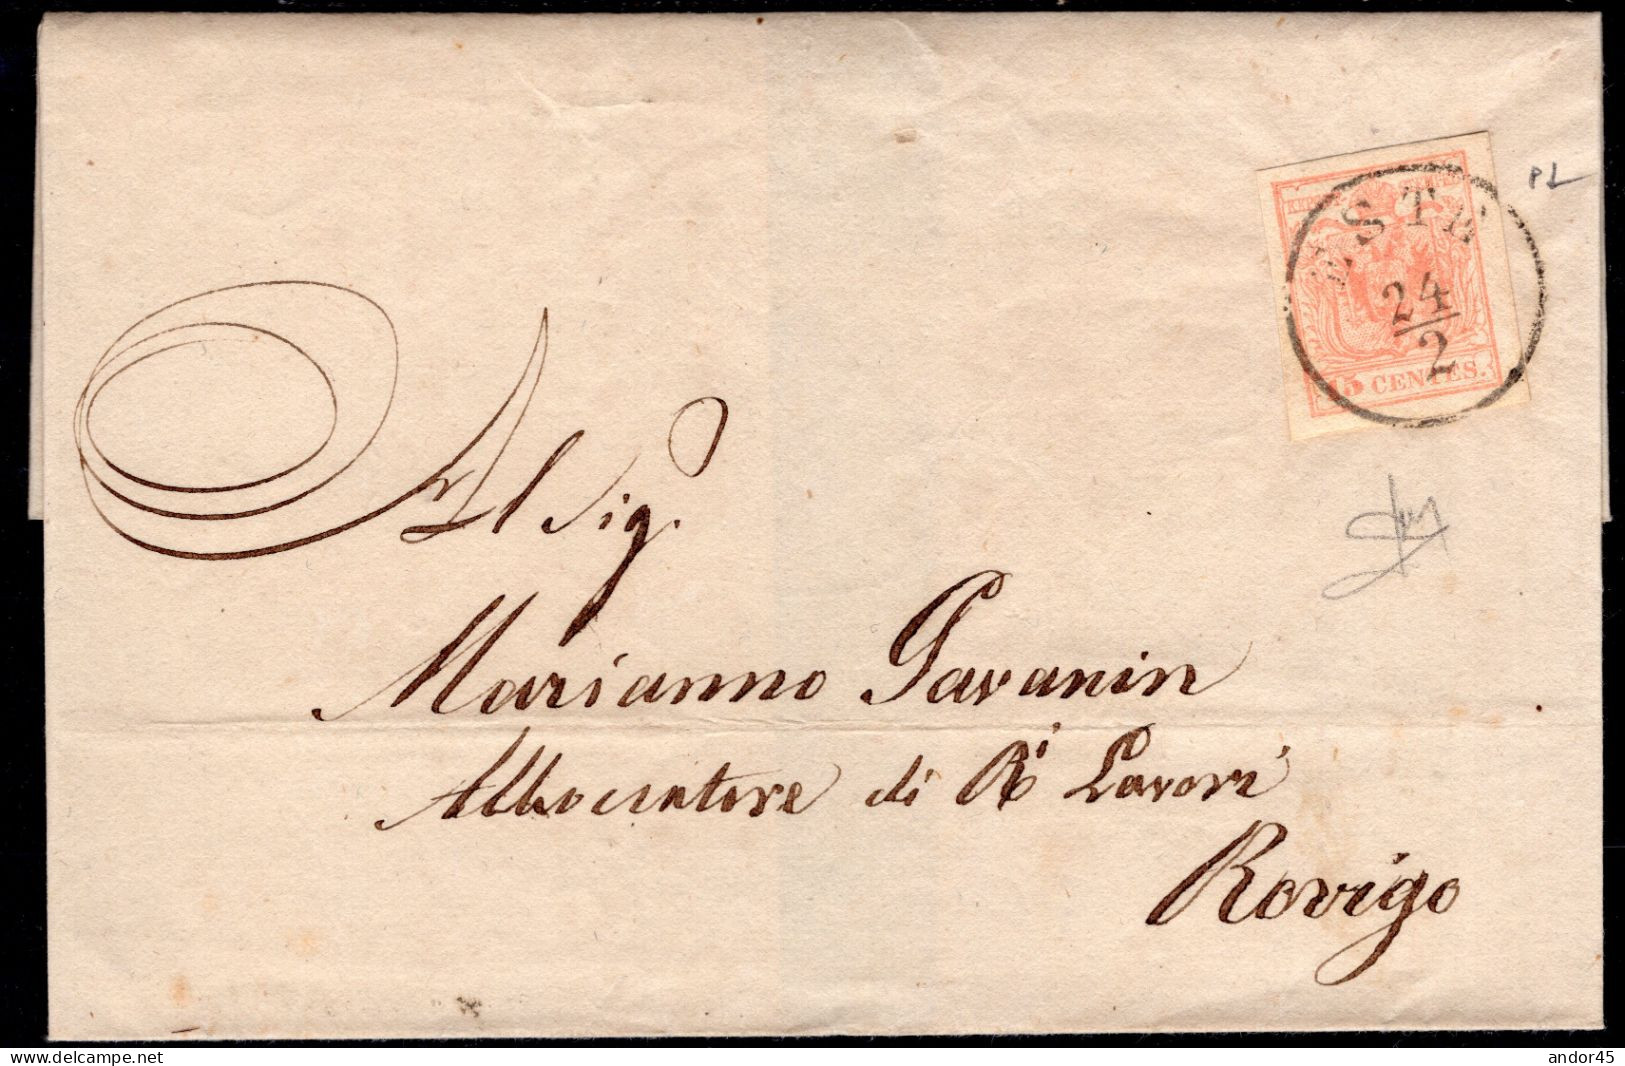 ESTE
24
2
15 CENTES.
Al Sig.r
Marianno Pavanin
Abboccatore di Ri Lavori
Rovigo
www.delcampe.net
andor45